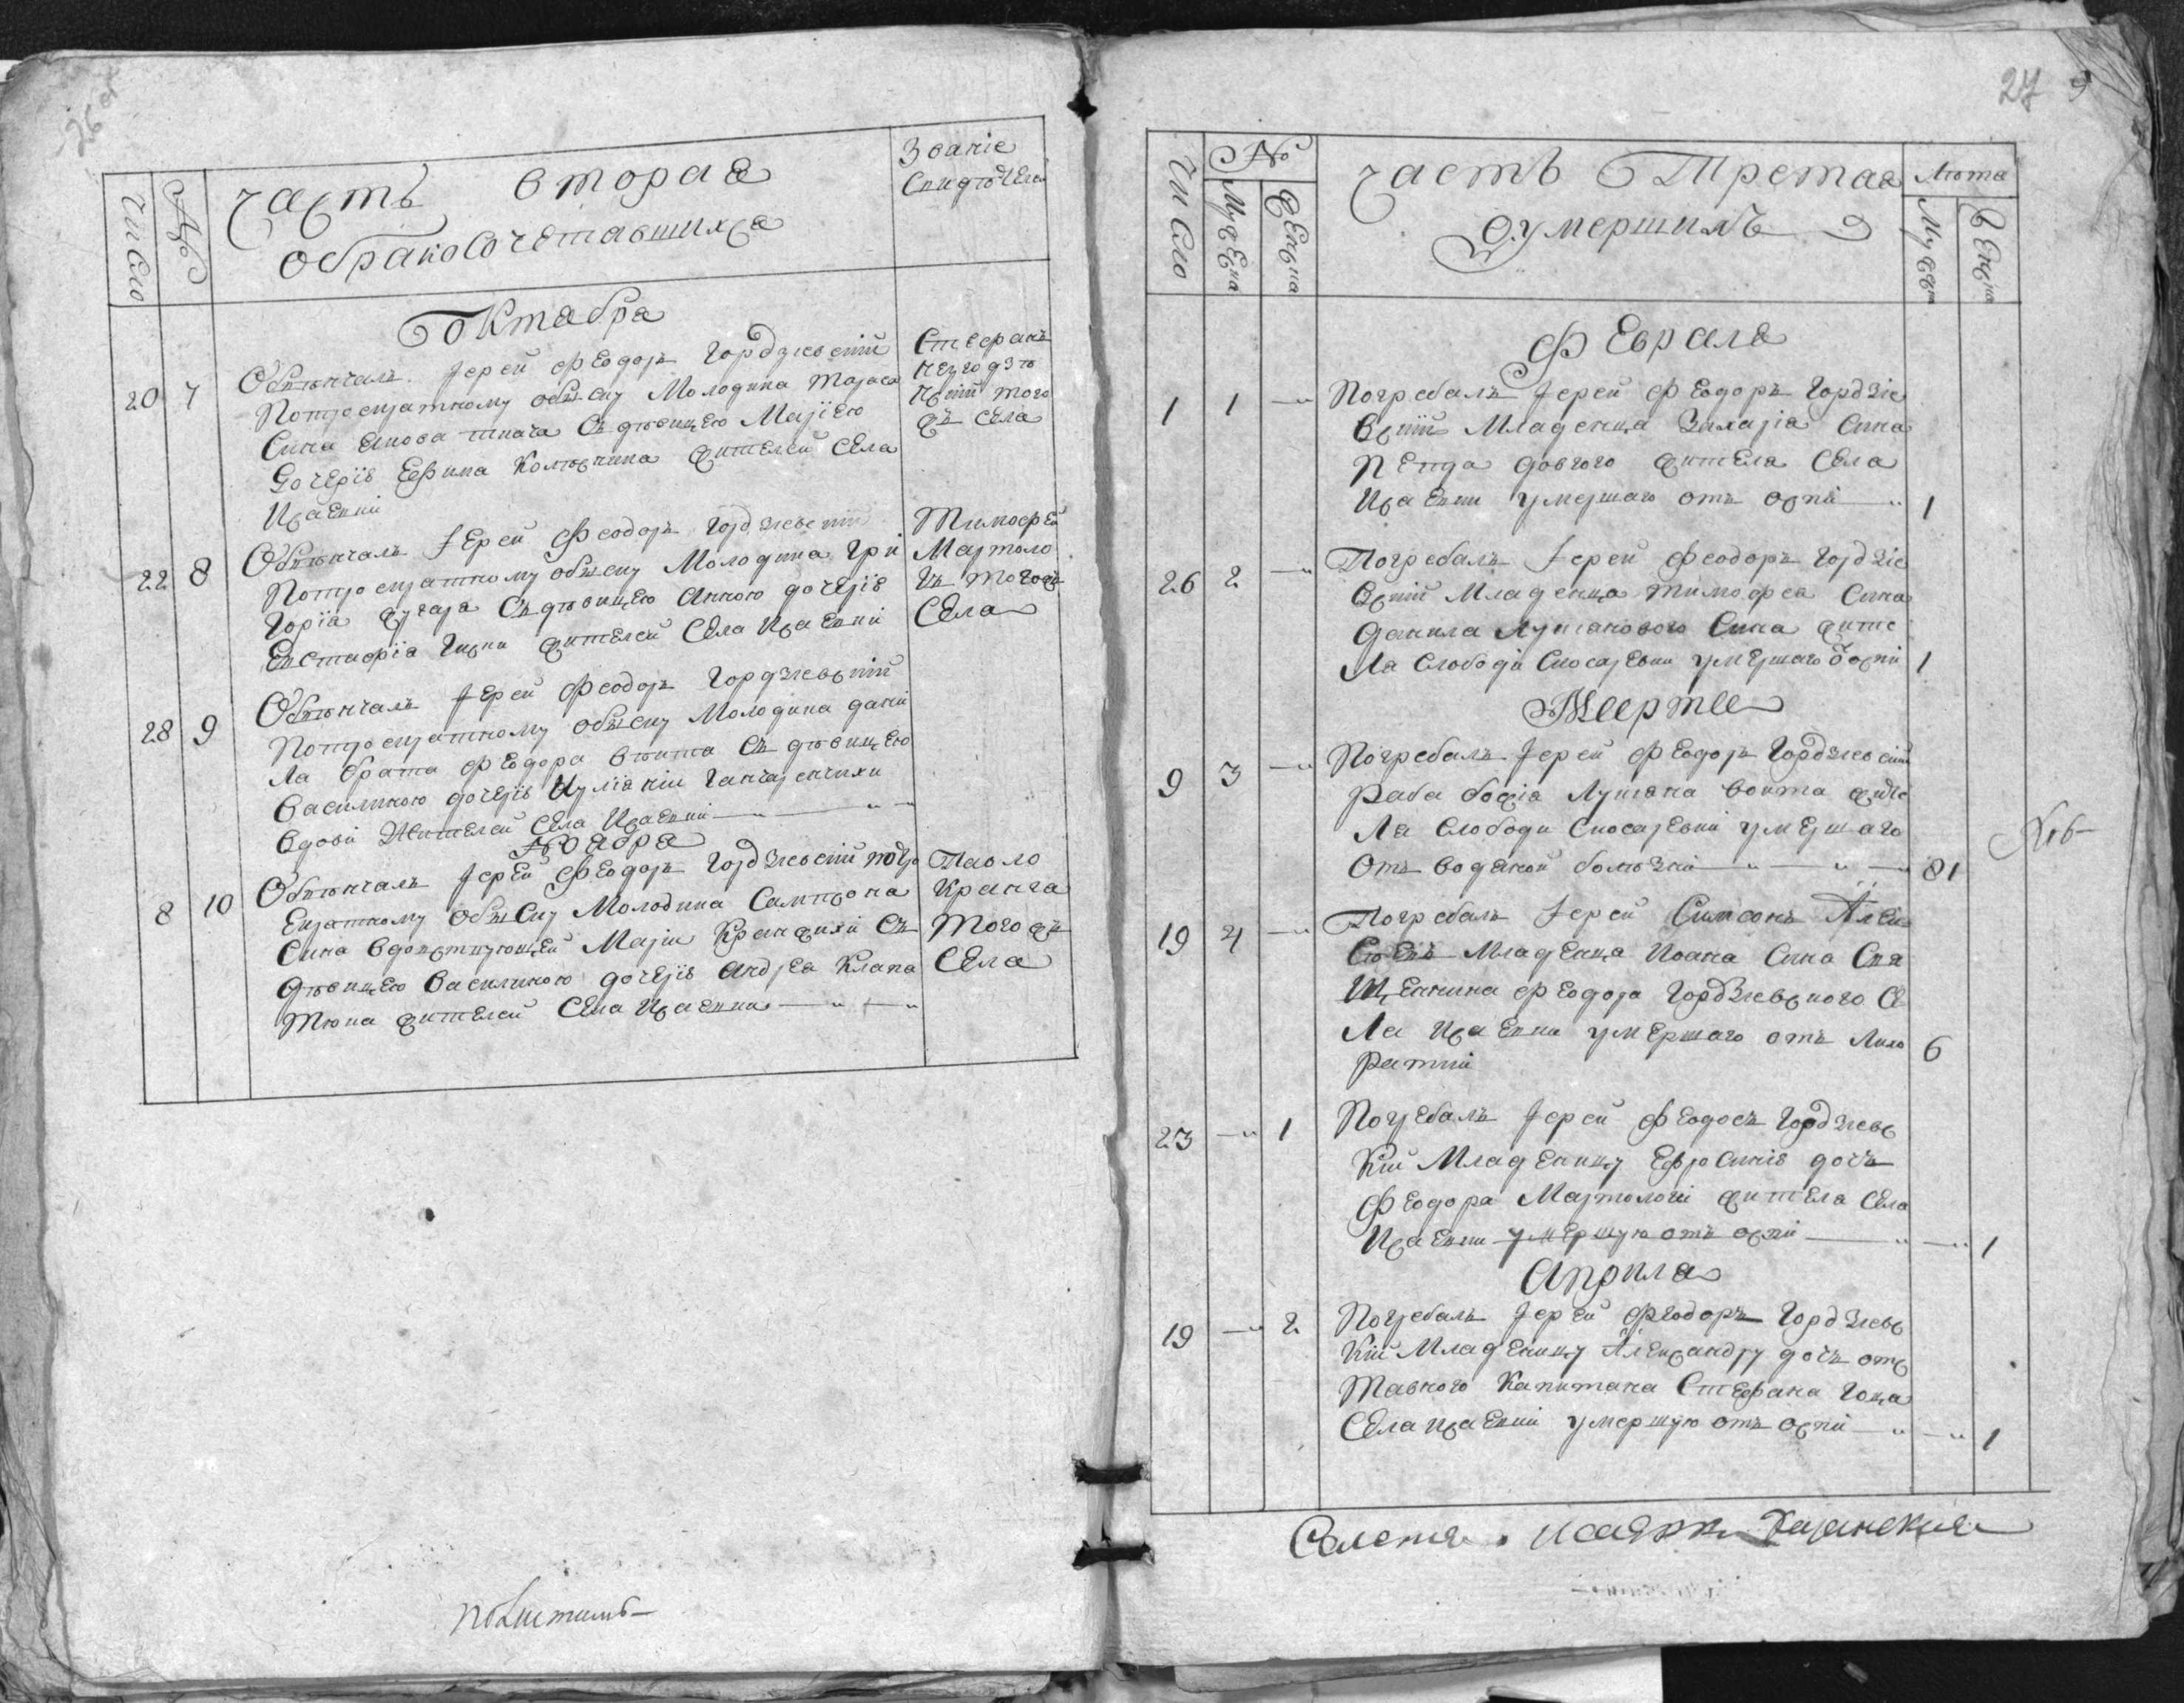 26 об
Число
№
Часть вторая
о бракосочетавшихся
Званіе
Свидѣтелей
Октября
20 7 Обвѣнчалъ Іерей Феодоръ Гордзіевскій
По троекратному обыску Молодика Тараса
Сина Якова ткача Съ дѣвицею Маріею
Дочерів Ефима жителей Села
Исаевки
Стефанъ
того
жъ Села
22 8 Обвѣнчалъ Іерей Феодоръ Гордзіевскій
По троекратному обыску Молодика Гри
горія Съ дѣвицею Анною дочерів
Евстафія жителей Села Исаевки
Тимофей
Мартоло
гъ тогожъ
Села
28 9 Обвѣнчалъ Іерей Феодоръ Гордзіевскій
По троекратному обыску Молодика Дани
ла брата Феодора Съ дѣвицею
Василиною дочерів Иуліаніи Ганчаренчихи
Вдови Жителей Села Исаевки
Ноября
8 10 Обвѣнчалъ Іерей Феодоръ Гордзіевскій по тро
екратному обыску Молодика Сампсона
Сина вдовствующей Маріи Кранжихи Съ
дѣвицею Василиною дочерів Андрея Клапа
тюка жителей Села Исаевки
Павло
Кранга
того жъ
Села
27 9
Число
№
Мужеска
Женска
Часть Третая
О умершихъ
Лѣта
Мужеск
Женска
Февраля
1 1 Погребалъ Іерей Феодоръ Гордзіе
вскій Младенца Захарія Сина
Довгого жителя Села
Исаевки умершаго отъ оспи 1
26 2 Погребалъ Іерей Феодоръ Гордзіе
вскій Младенца Тимофея Сина
Данила Лукіанового Сина жите
ля Слободи Слюсаревки умершаго о оспи 1
Марта
9 3 Погребалъ Іерей Феодоръ Гордзіевскій
Раба божія Лукіана Войта жите
ля Слободи Слюсаревки умершаго
отъ водяной болѣзни 81
19 4 Погребалъ Іерей Симеонъ Алек
сѣевъ Младенца Иоана Сина Свя
щенника Феодора Гордзіевского Се
ла Исаевки умершаго отъ Лихо
ратки 6
23 1 Погребалъ Іерей Феодоръ Гордзіевс
кій Младеницу Ефросинів дочъ
Феодора Мартологи жителя Села
Исаевки умершую отъ оспи 1
Априля
19 2 Погребалъ Іерей Феодоръ Гордзіевс
кій Младеницу Александру дочъ отс
тавного Капитана Стефана Гоца
Села Исаевки умершую отъ оспи 1